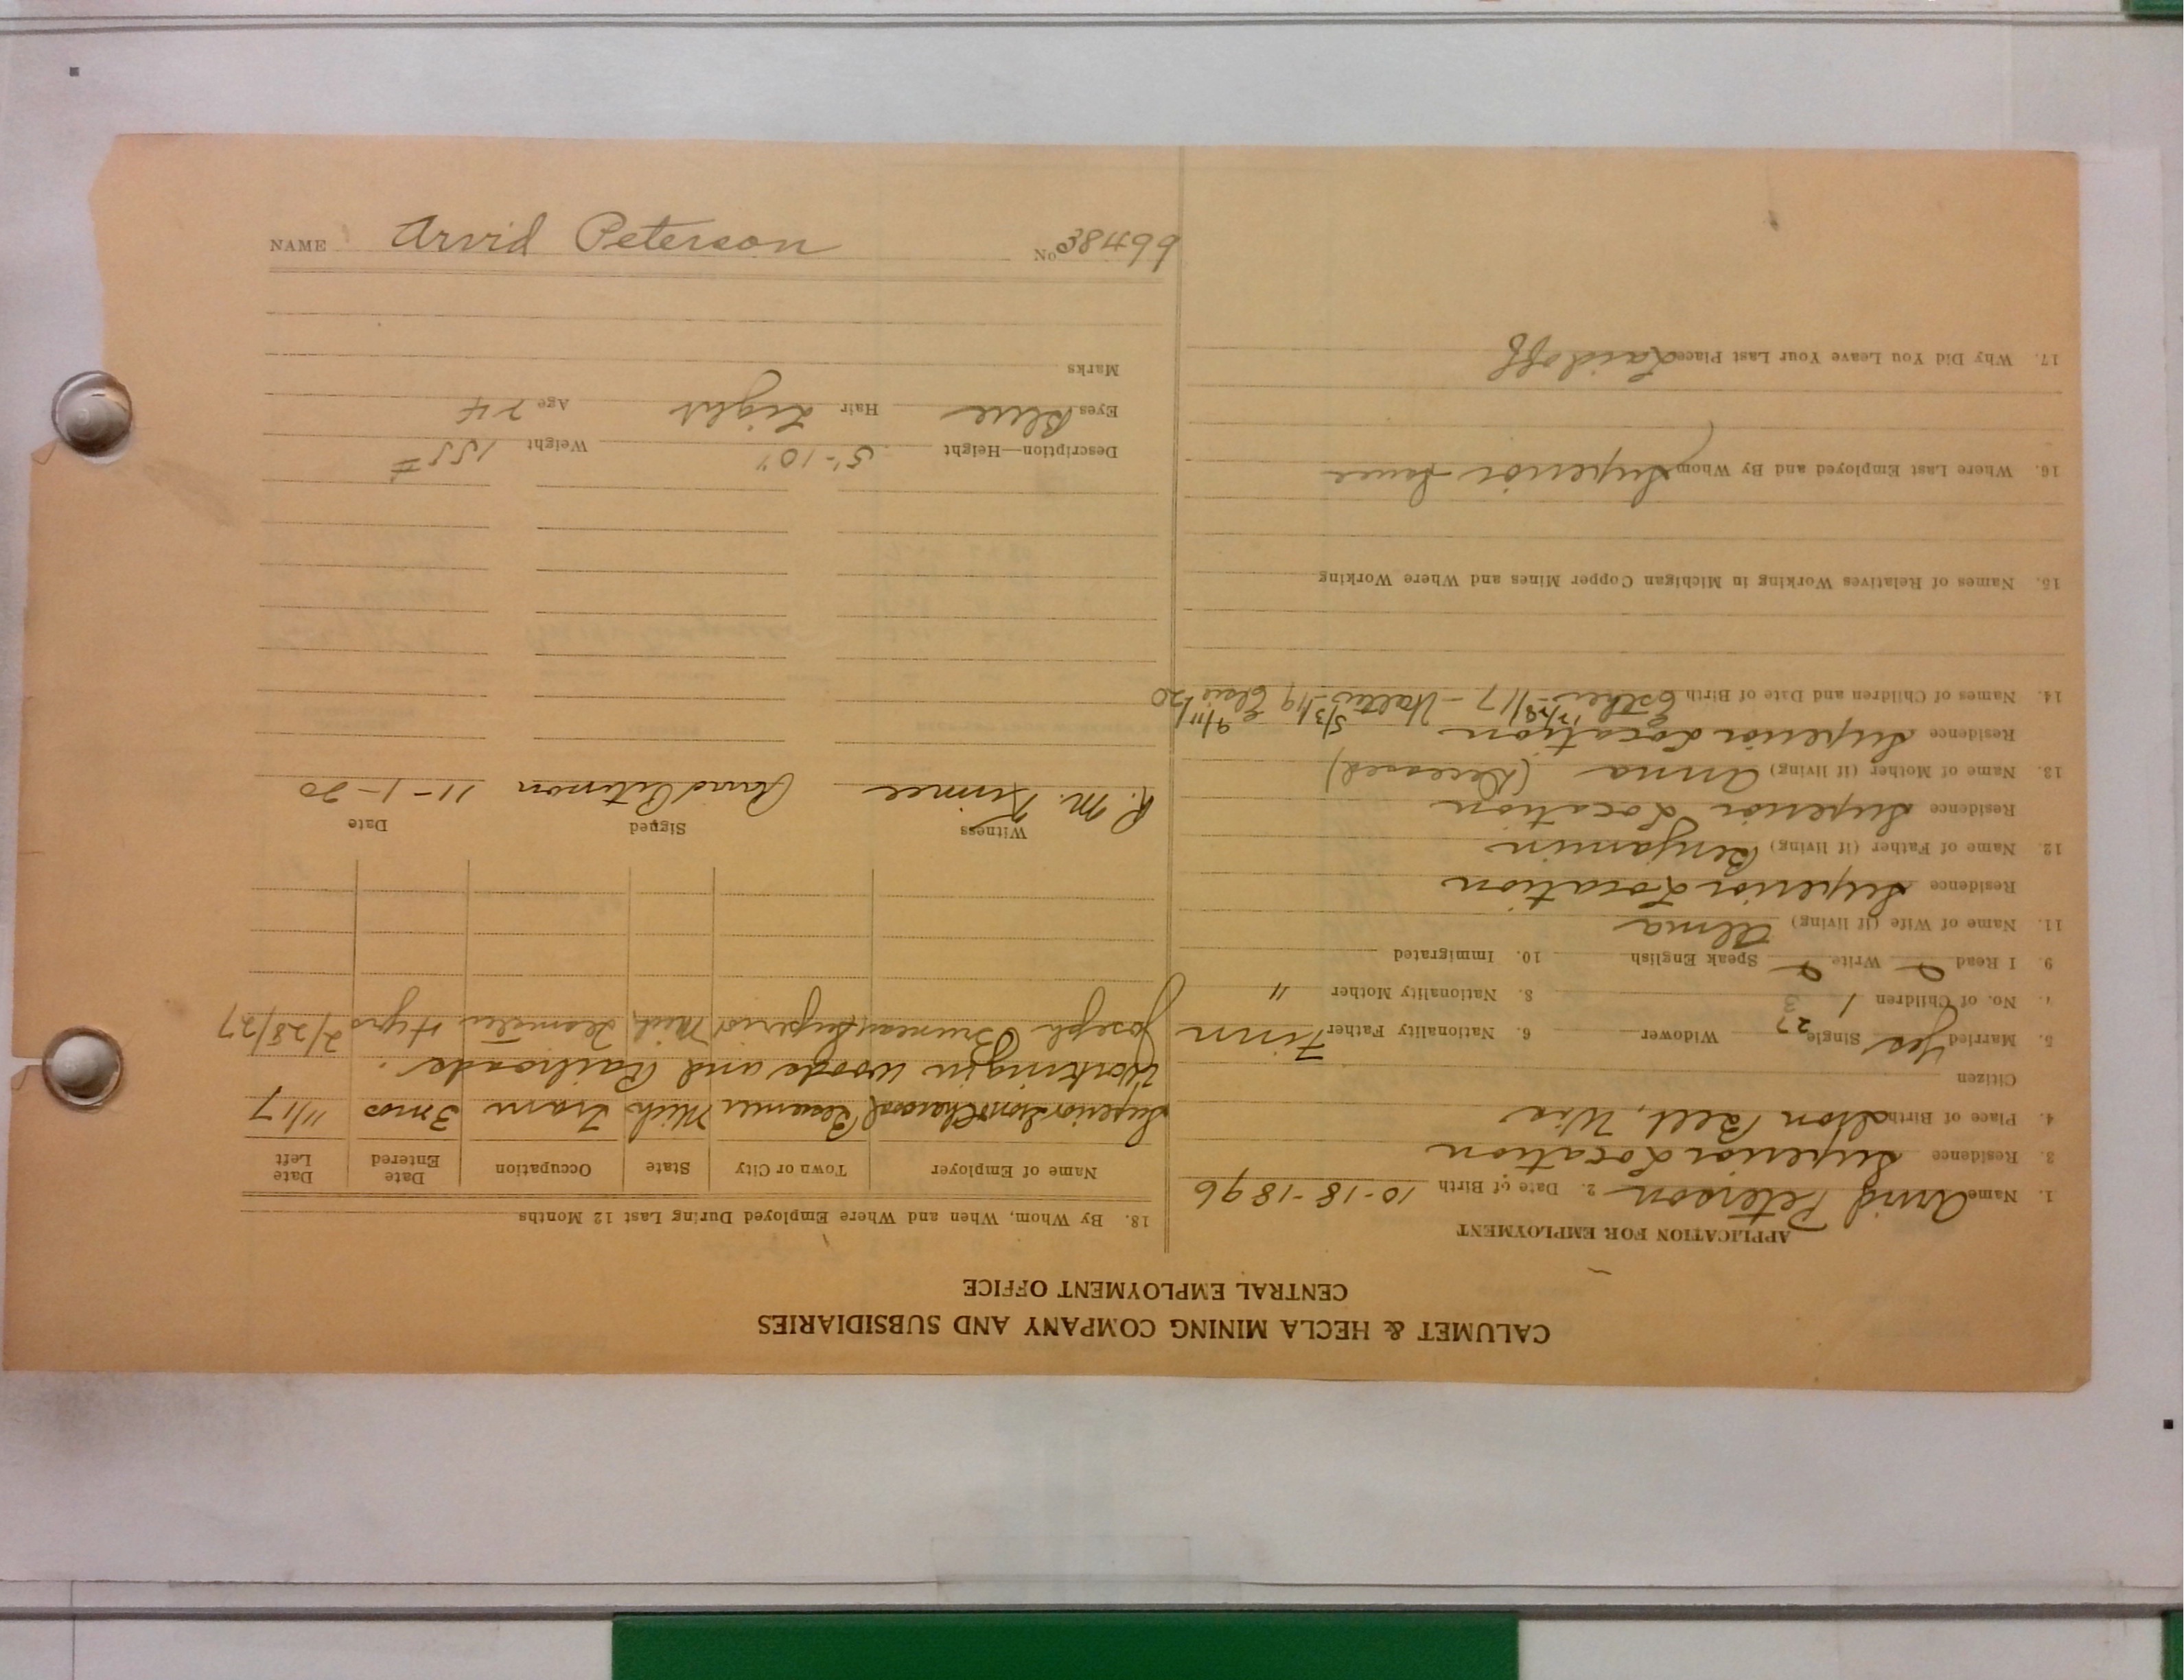 CALUMET & HECLA MINING COMPANY AND SUBSIDIARIES
CENTRAL EMPLOYMENT OFFICE
APPLICATION FOR EMPLOYMENT
1. Name Arvid Peterson 2. Date of Birth 10-18-1896
3. Residence Superior Location
4. Place of Birth Iron Belt, Wis
Citizen
5. Married Yes Single Widower 6. Nationality Father Finn
7. No. of Children 1 3 8. Nationality Mother "
9. I Read Write Speak English 10. Immigrated
11. Name of Wife (if living) Alma
Residence Superior Location
12. Name of Father (if living) Benjamin
Residence Superior Location
13. Name of Mother (if living) Anna (Deceased)
Residence Superior Location
14. Names of Children and Date of Birth Esther 12/28/17 - Walter 5/3/19 Elsie 9/11/20
15. Names of Relatives Working in Michigan Copper Mines and Where Working
16. Where Last Employed and By Whom Superior
17. Why Did You Leave Your Last Place Laid off
18. By Whom, When and Where Employed During Last 12 Months
Name of Employer Town or City State Occupation Date Entered Date Left
Superior Charcoal Mich 3 mos 11/17
Working in woods and Railroads.
Joseph Bruneau Superior Mich Teamster 4 yrs 2/28/27
Witness Signed Date
R. M. Arvid Peterson 11-1-20
Description—Height 5'-10" Weight 155 #
Eyes Blue Hair Light Age 24
Marks
NAME Arvid Peterson No